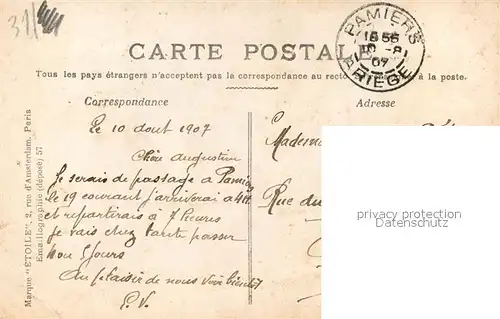 31/
PAMIERS
ARIÈGE
CARTE POSTALE
Tous les pays étrangers n'acceptent pas la correspondance au recto à la poste.
Correspondance
Adresse
Le 10 aout 1907
Chère Augustine
Je serais de passage a Pamiers
le 19 courant j'arriverai a 4H
et repartirais à 7 heures
je vais chez tante passer
mon 5 jours
Au plaisir de nous voir bientôt
E.V.
Madem
Rue du
Marque "ÉTOILE", 2, rue d'Amsterdam, Paris
Emaillographie (déposé) 57
privacy protection
Datenschutz